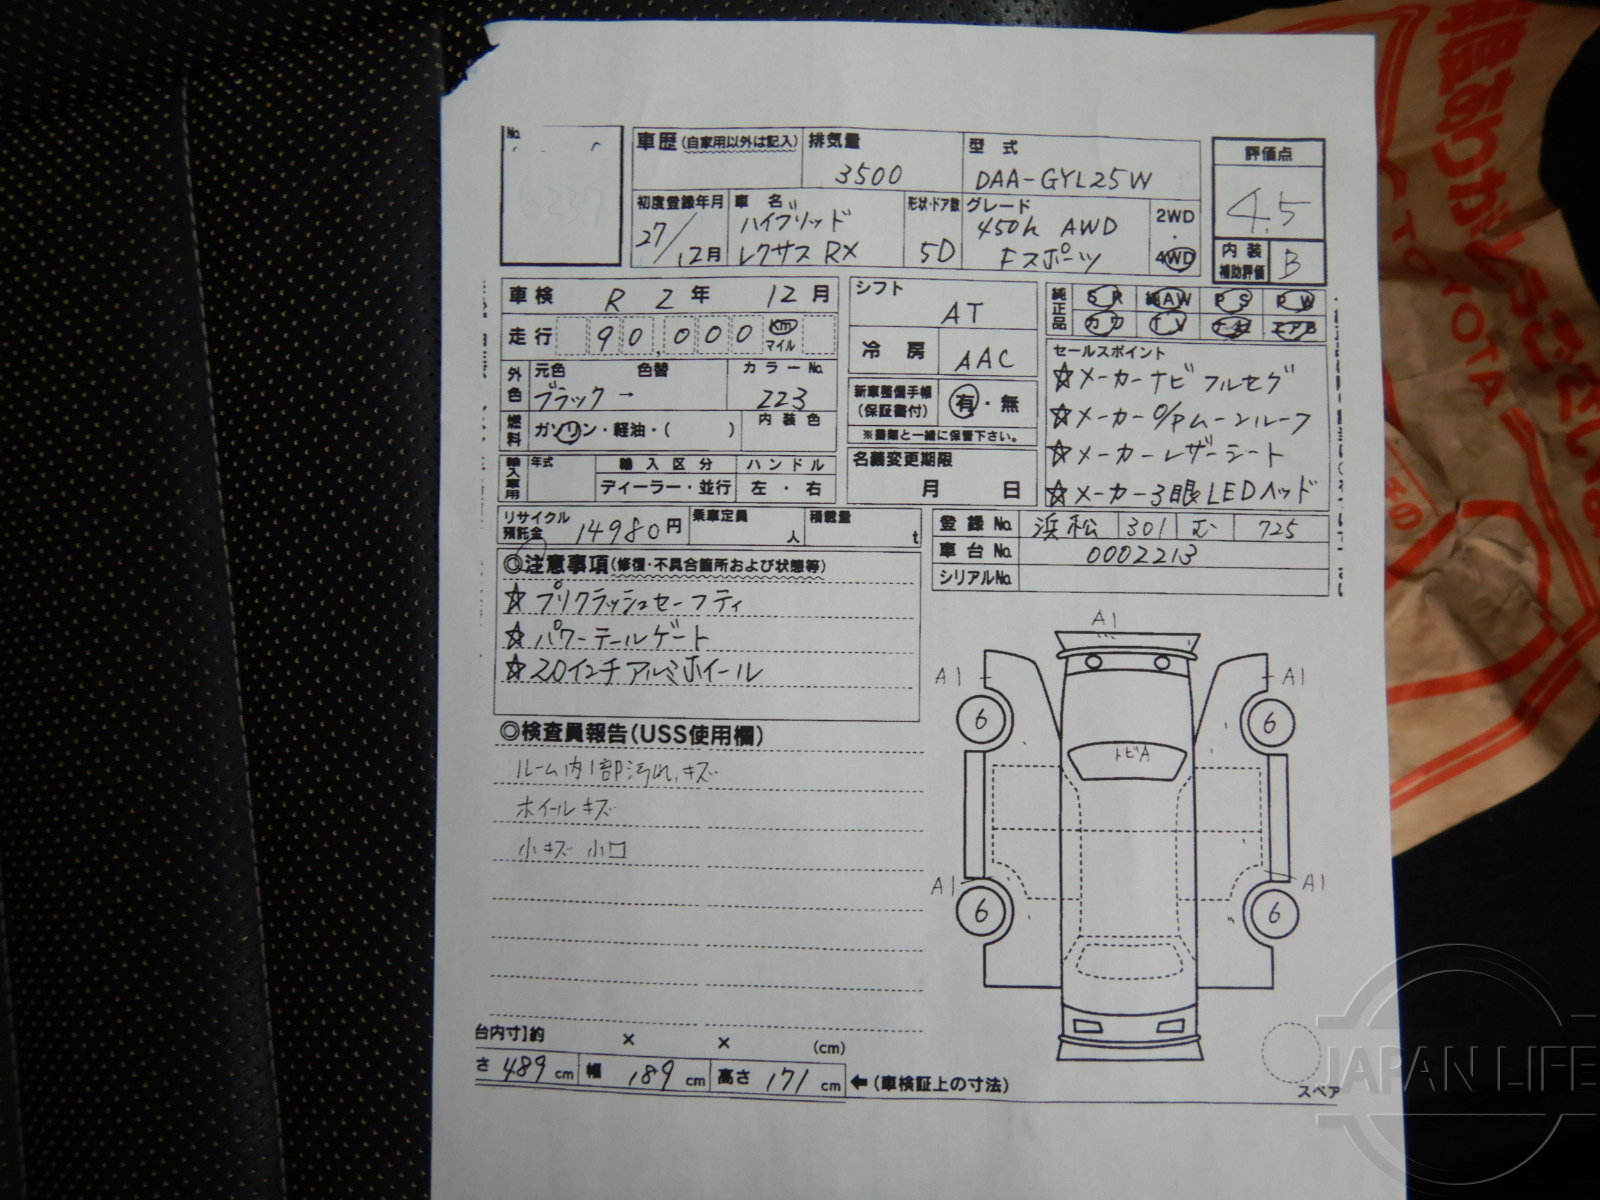 No.
車歴(自家用以外は記入)
排気量
3500
型式
DAA-GYL25W
評価点
4.5
初度登録年月
27/12月
車名
ハイブリッド
レクサス RX
形状・ドア数
5D
グレード
450h AWD
Fスポーツ
2WD
・
4WD
内装
補助評価
B
車検 R 2年 12月
走行 90,000 Km
マイル
外色
元色 色替
ブラック →
カラーNo.
223
燃料
ガソリン・軽油・( )
内装色
輸入車用
年式
輸入区分
ディーラー・並行
ハンドル
左・右
シフト
AT
冷房
AAC
新車整備手帳
(保証書付)
有・無
※書類と一緒に保管下さい。
名義変更期限
月 日
純正品
SR 純AW PS PW
カワ TV ナビ エアB
セールスポイント
☆メーカーナビ フルセグ
☆メーカーO/Pムーンルーフ
☆メーカーレザーシート
☆メーカー3眼LEDヘッド
リサイクル
預託金
14980円
乗車定員
人
積載量
t
登録No. 浜松 301 む 725
車台No. 0002213
シリアルNo.
◎注意事項(修復・不具合箇所および状態等)
☆プリクラッシュセーフティ
☆パワーテールゲート
☆20インチアルミホイール
◎検査員報告(USS使用欄)
ルーム内1部汚れ,キズ
ホイールキズ
小キズ 小凹
A1
A1
A1
6
6
トビA
A1
A1
6
6
台内寸法約 × × (cm)
さ 489 cm 幅 189 cm 高さ 171 cm ←(車検証上の寸法)
スペア
JAPAN LIFE
TOYOTA